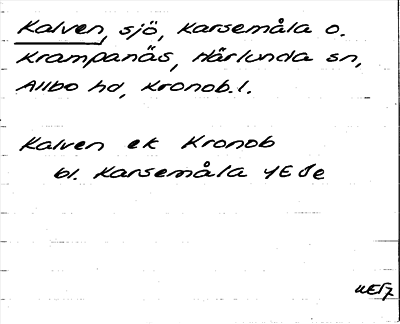 Kalven, sjö, Karsemåla o.
Krampanäs, Härlunda sn,
Allbo hd, Kronob. l.
Kalven ek Kronob
bl. Karsemåla 4E